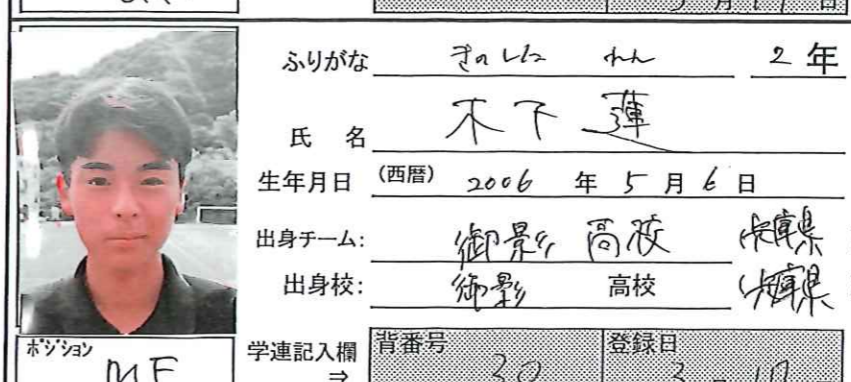 ふりがな きのした れん 2年
氏 名 木下 蓮
生年月日 (西暦) 2006 年 5 月 6 日
出身チーム: 御影高校 兵庫県
出身校: 御影 高校 兵庫県
ポジション MF
学連記入欄 ⇒ 背番号 30 登録日